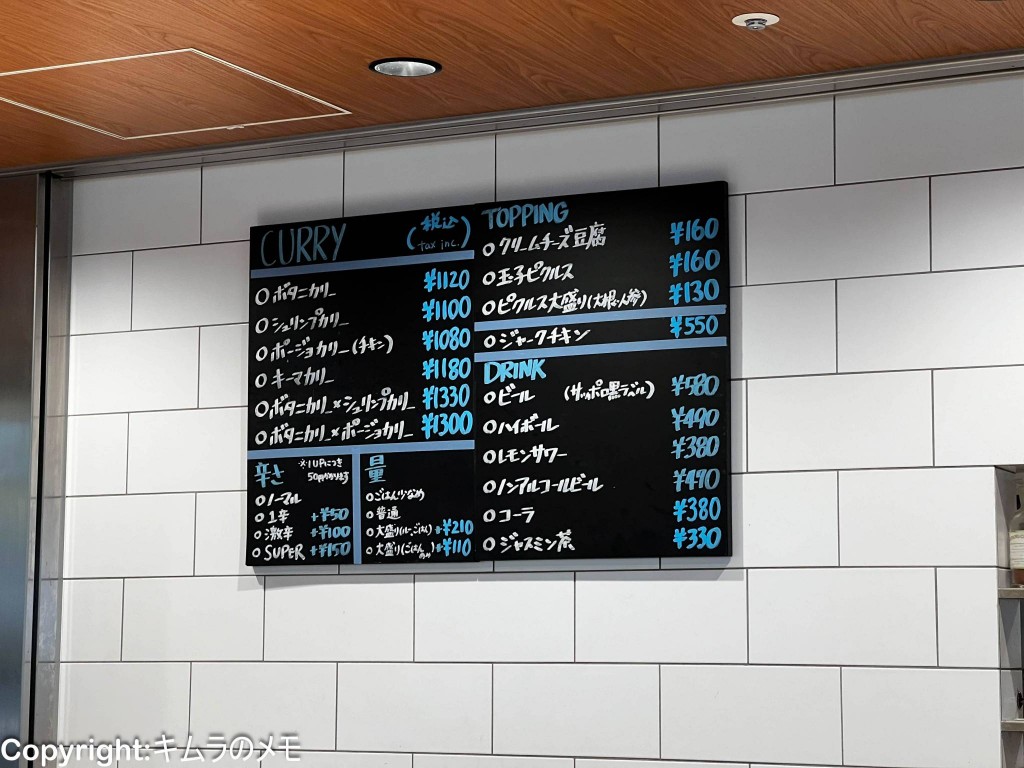 CURRY (税込 tax inc.)
○ボタニカリー ¥1120
○シュリンプカリー ¥1100
○ポージョカリー(チキン) ¥1080
○キーマカリー ¥1180
○ボタニカリー×シュリンプカリー ¥1330
○ボタニカリー×ポージョカリー ¥1300
辛さ ※1UPにつき
50円かかります
○ノーマル
○1辛 +¥50
○激辛 +¥100
○SUPER +¥150
量
○ごはん少なめ
○普通
○大盛り(ルー、ごはん) +¥210
○大盛り(ごはんのみ) +¥110
TOPPING
○クリームチーズ豆腐 ¥160
○玉子ピクルス ¥160
○ピクルス大盛り(大根・人参) ¥130
○ジャークチキン ¥550
DRINK
○ビール (サッポロ黒ラベル) ¥580
○ハイボール ¥490
○レモンサワー ¥380
○ノンアルコールビール ¥490
○コーラ ¥380
○ジャスミン茶 ¥330
Copyright:キムラのメモ